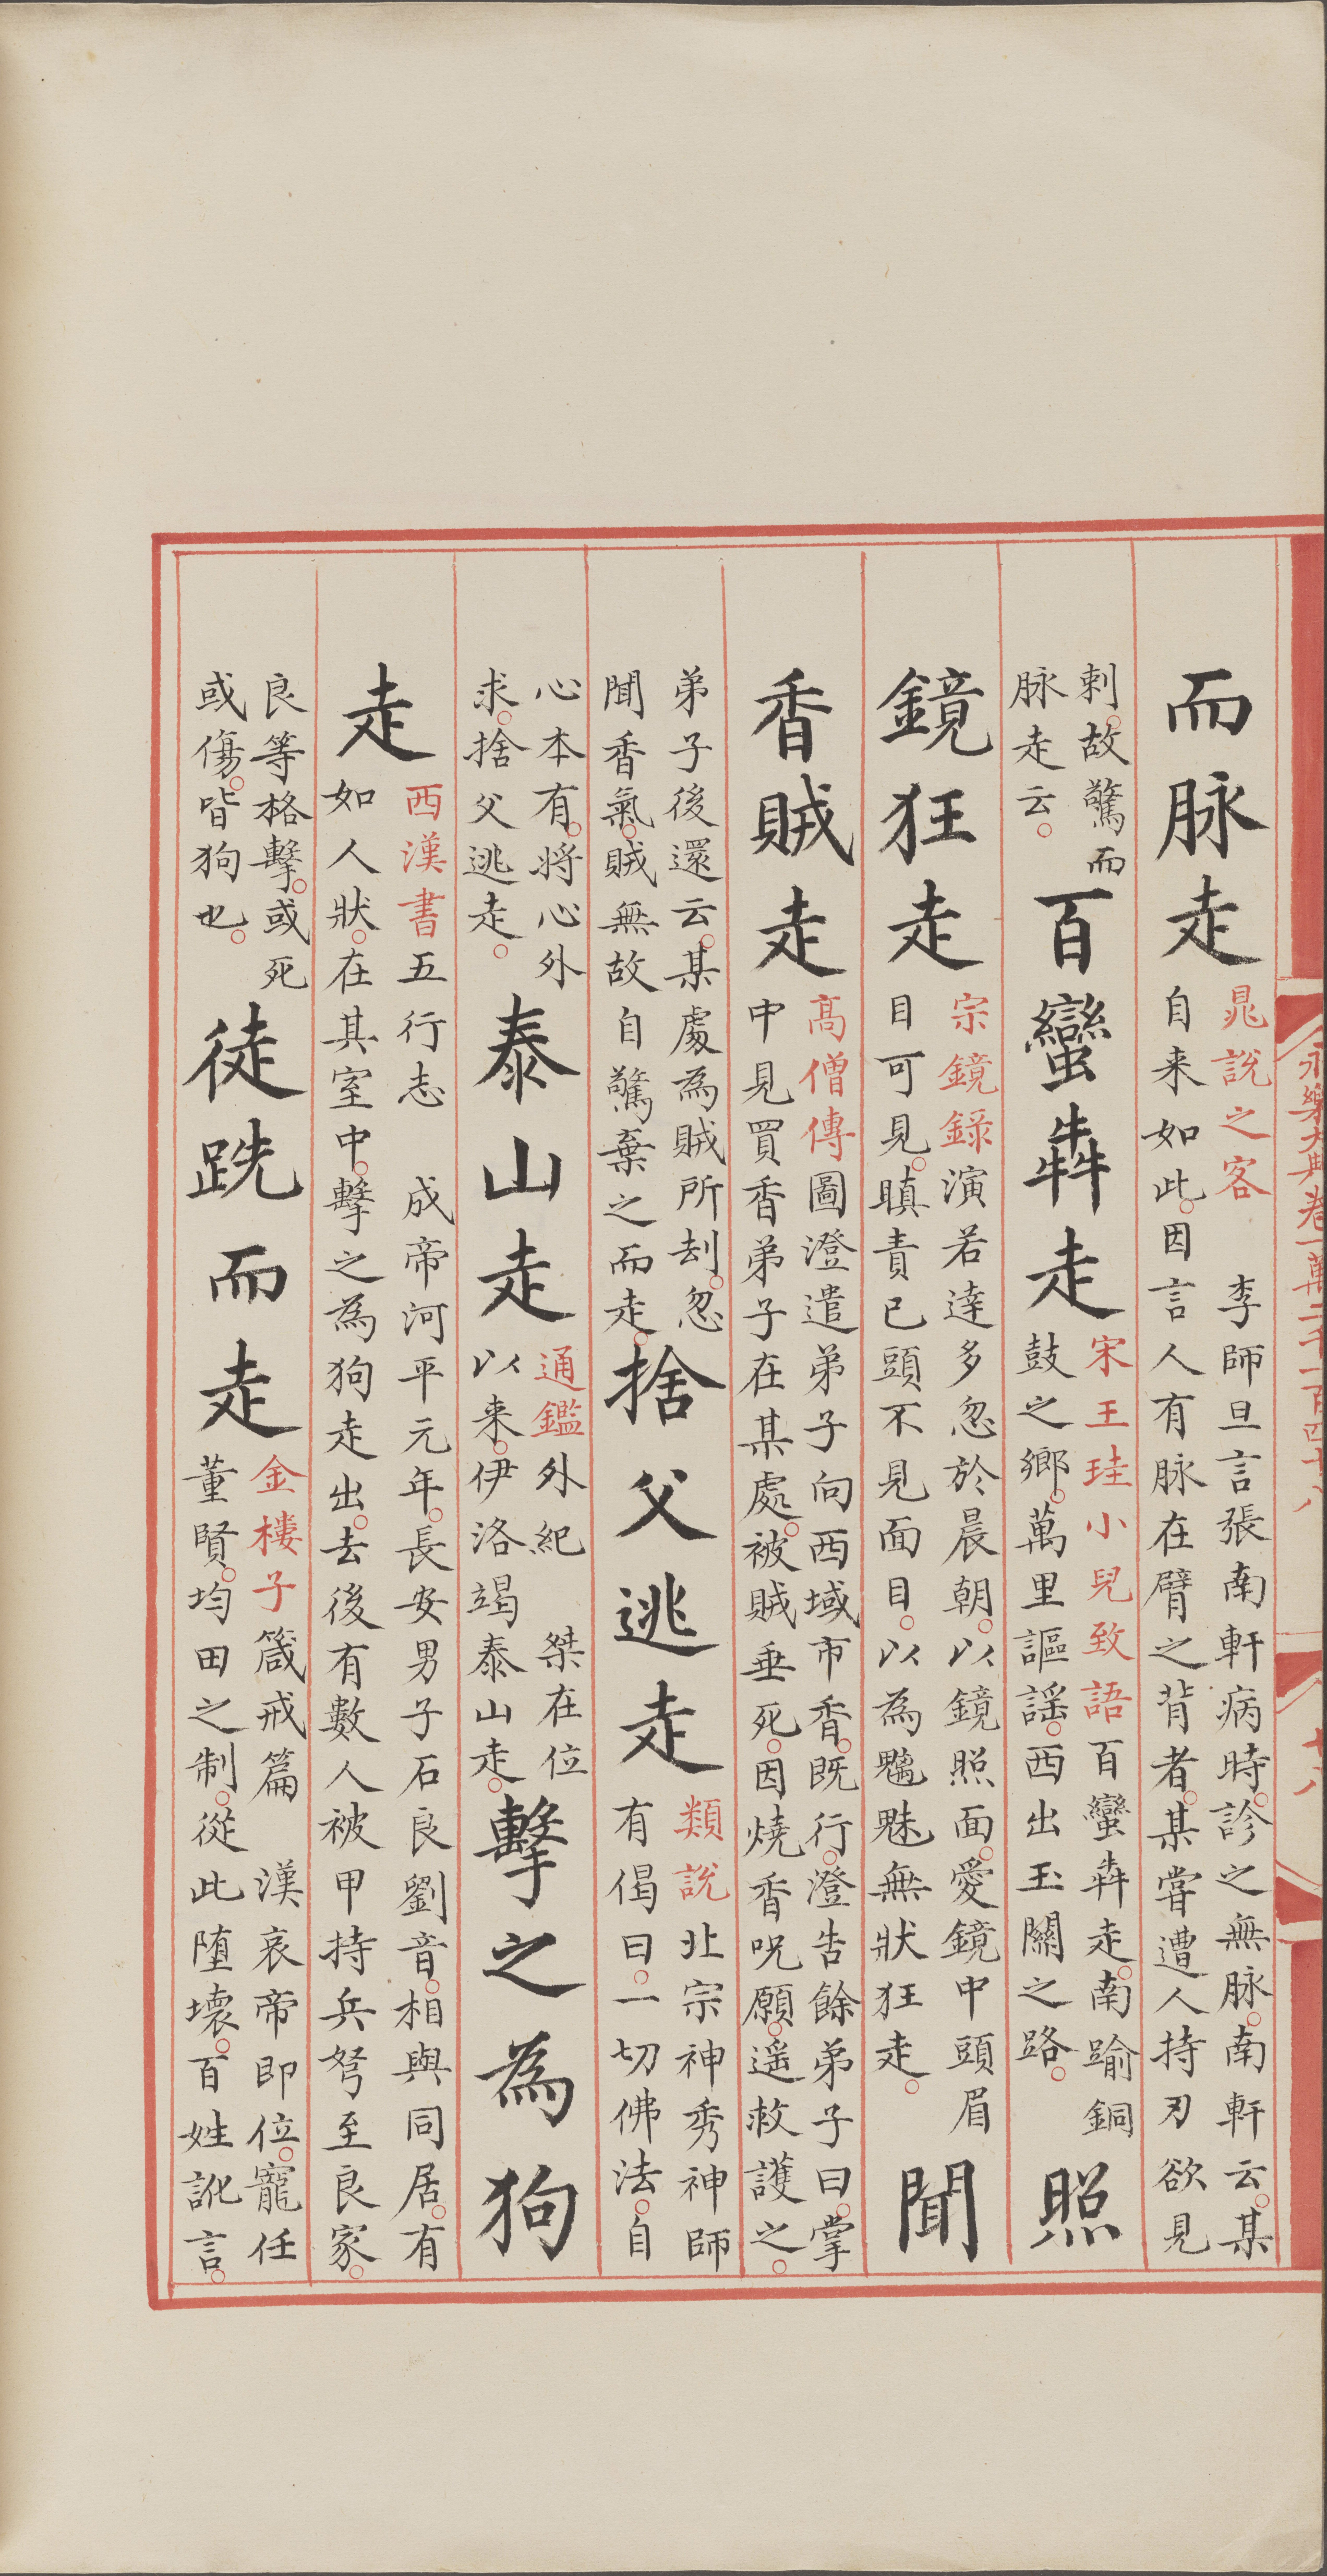 永樂大典卷一萬二千一百四十八
十八
而脉走
晁說之客　李師旦言張南軒病時。診之無脉。南軒云。某
自来如此。因言人有脉在臂之背者。某嘗遭人持刃欲見
刺。故驚而
脉走云。
百蠻犇走
宋王珪小兒致語百蠻犇走。南踰銅
鼓之鄉。萬里謳謠。西出玉關之路。
照
鏡狂走
宗鏡錄演若達多忽於晨朝。以鏡照面。愛鏡中頭眉
目可見。瞋責已頭不見面目。以為魑魅無狀狂走。
聞
香賊走
高僧傳圖澄遣弟子向西域市香。既行。澄告餘弟子曰。掌
中見買香弟子在某處。被賊垂死。因燒香呪願。遥救護之。
弟子後還云。某處為賊所刦。忽
聞香氣。賊無故自驚棄之而走。
捨父逃走
類說北宗神秀神師
有偈曰。一切佛法。自
心本有。將心外
求。捨父逃走。
泰山走
通鑑外紀　桀在位
以来。伊洛竭泰山走。
擊之為狗
走
西漢書五行志　成帝河平元年。長安男子石良劉音。相與同居。有
如人狀。在其室中。擊之為狗走出。去後有數人被甲持兵弩至良家。
良等格擊。或死
或傷。皆狗也。
徒跣而走
金樓子箴戒篇　漢哀帝即位。寵任
董賢。均田之制。從此墮壞。百姓訛言。